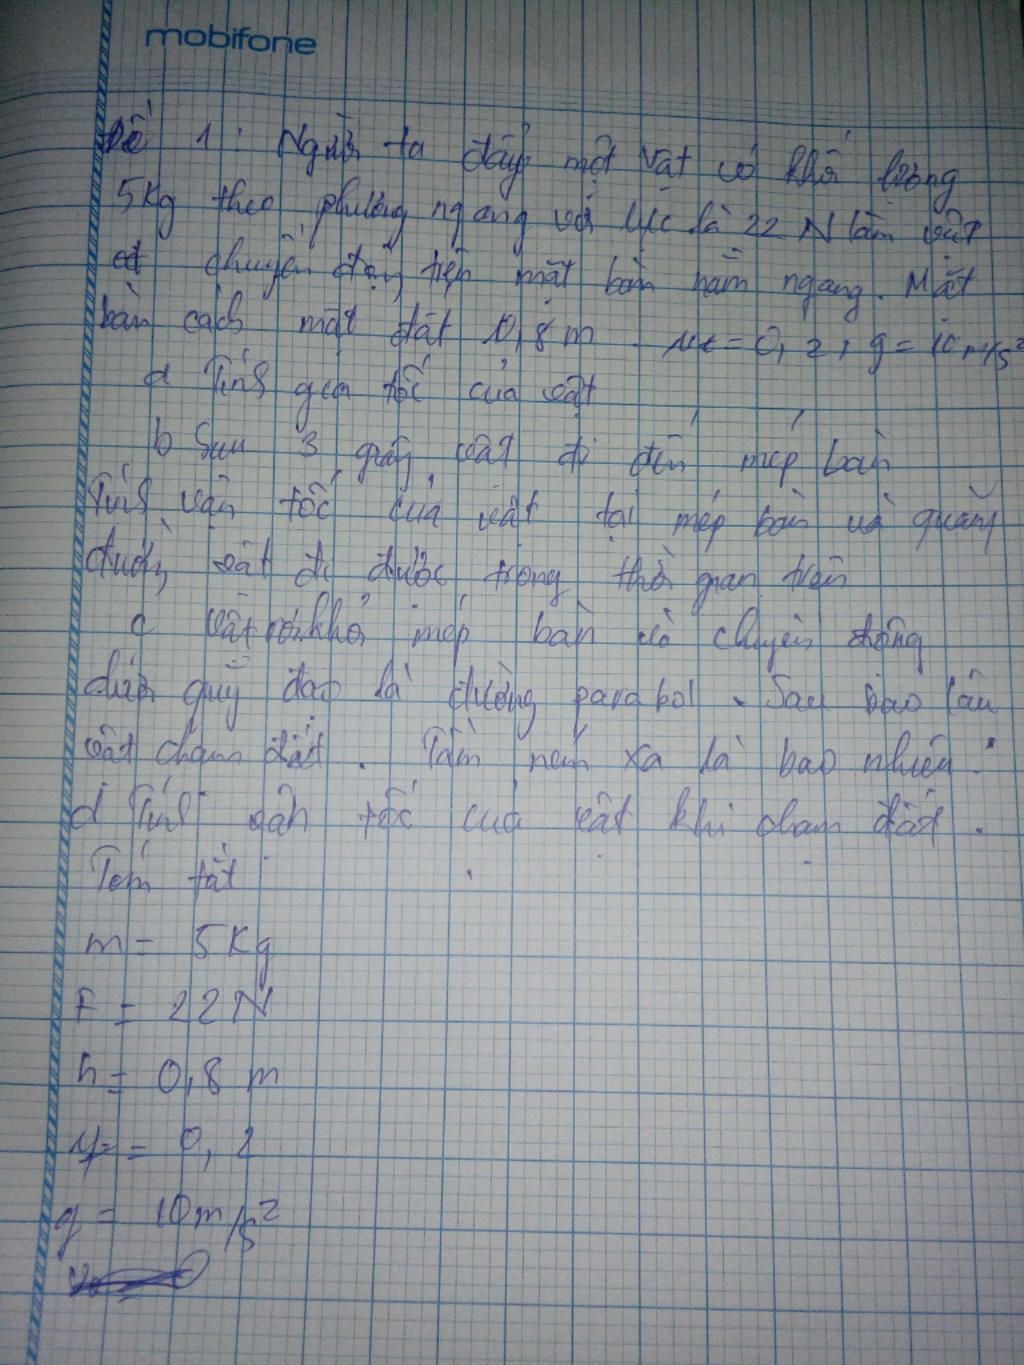 mobifone
Đề 1 : Người ta đẩy một vật có khối lượng
5Kg theo phương ngang với lực là 22 N làm vật
chuyển động trên mặt bàn nằm ngang. Mặt
bàn cách mặt đất 0,8 m. μt = 0,2, g = 10 m/s²
a Tính gia tốc của vật
b Sau 3 giây vật đi đến mép bàn
Tính vận tốc của vật tại mép bàn và quãng
đường vật đi được trong thời gian trên
c vật rời khỏi mép bàn và chuyển động
quỹ đạo là đường parabol. Sau bao lâu
vật chạm đất. Tầm ném xa là bao nhiêu
d Tính vận tốc của vật khi chạm đất.
Tóm tắt
m = 5Kg
F = 22N
h = 0,8 m
μt = 0,2
g = 10m/s²